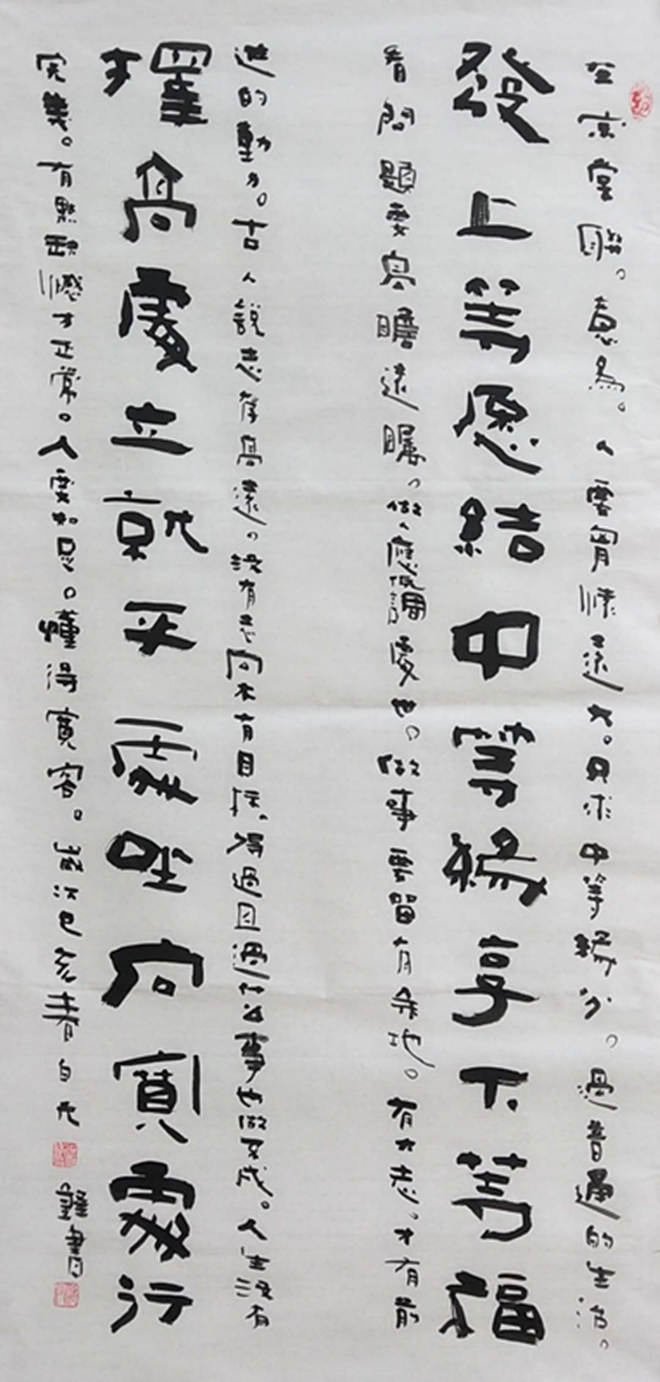 左宗棠聯。意為。人要胸懷遠大。只求中等緣分。過普通的生活。
發上等愿結中等緣享下等福
看問題要高瞻遠矚。做人應低調處世。做事要留有余地。有大志。才有前
進的動力。古人說志存高遠。沒有志向木有目标得過且過什么事也做不成。人生沒有
擇高處立就平處坐向寬處行
完美。有點缺憾才正常。人要知足。懂得寬容。歲次己亥春白 書